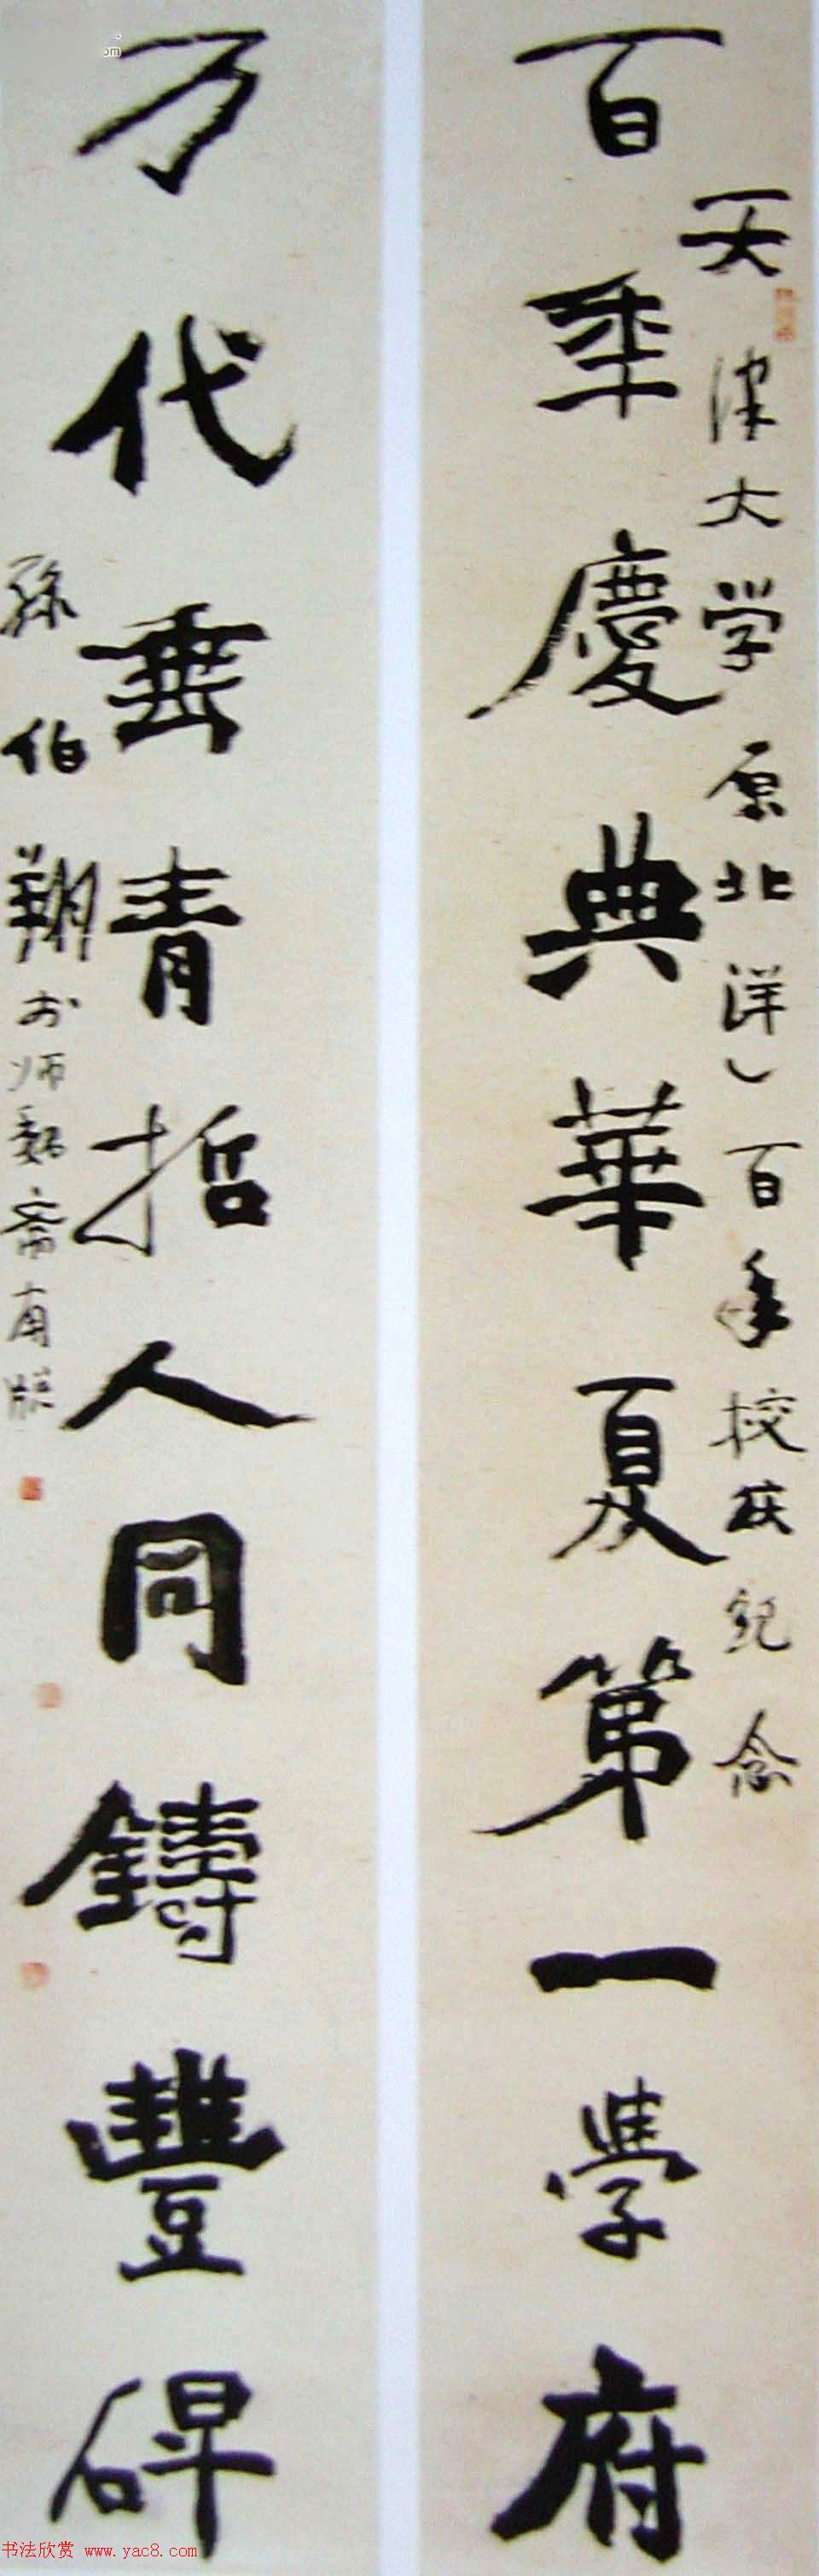 天津大学(原北洋)百年校庆纪念
百年慶典華夏第一學府
万代垂青哲人同鑄豐碑
孫伯翔於师魏斋南牕
书法欣赏 www.yac8.com